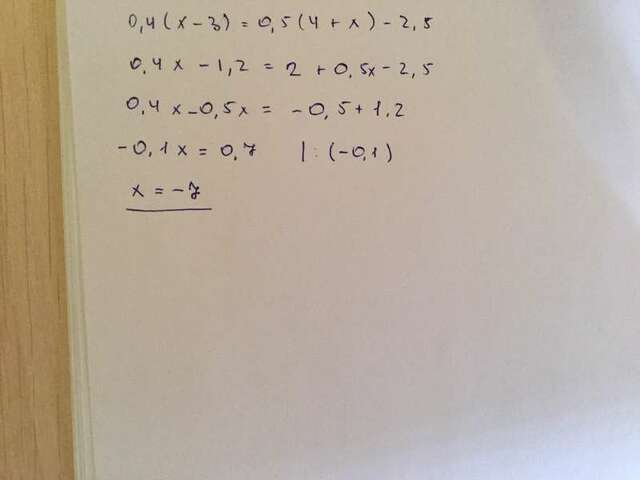 0,4(x-3) = 0,5(4+x)-2,5
0,4x -1,2 = 2 + 0,5x-2,5
0,4x-0,5x = -0,5+1,2
-0,1x = 0,7 |:(-0,1)
x = -7